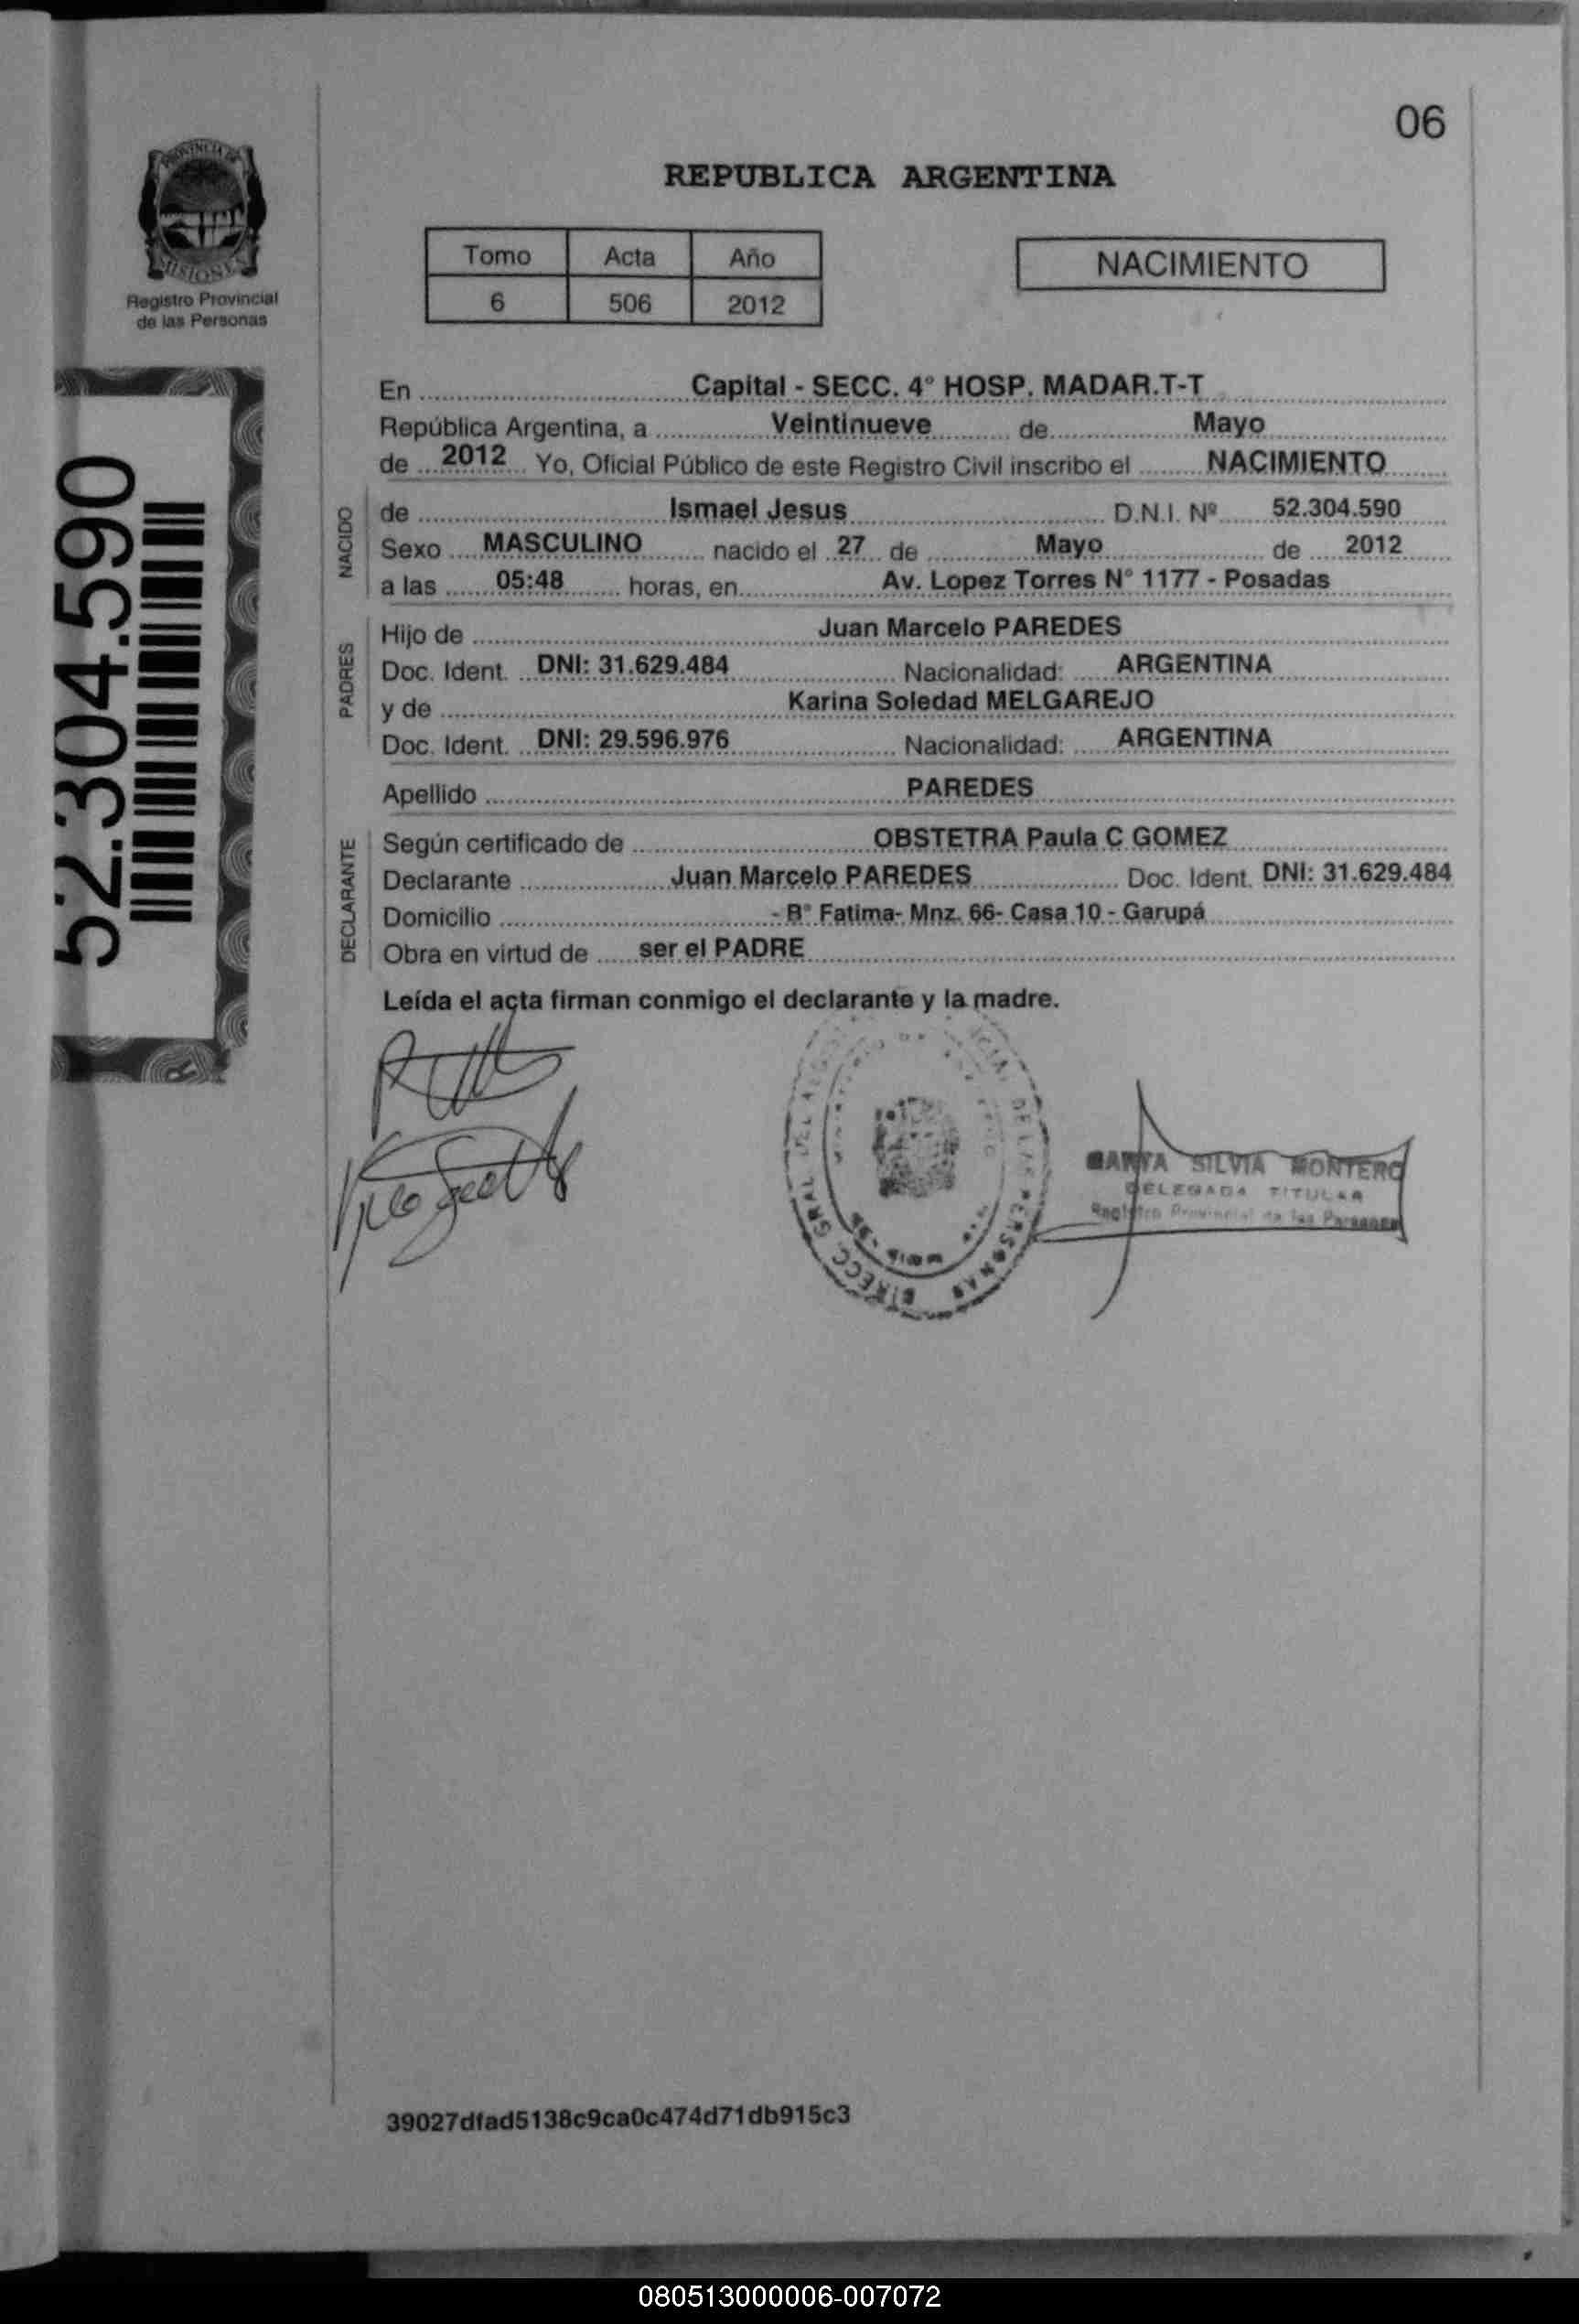 06
PROVINCIA DE
MISIONES
Registro Provincial
de las Personas
REPUBLICA ARGENTINA
Tomo Acta Año
6 506 2012
NACIMIENTO
52.304.590
En Capital - SECC. 4° HOSP. MADAR.T-T
República Argentina, a Veintinueve de Mayo
de 2012 Yo, Oficial Público de este Registro Civil inscribo el NACIMIENTO
NACIDO
de Ismael Jesus D.N.I. Nº 52.304.590
Sexo MASCULINO nacido el 27 de Mayo de 2012
a las 05:48 horas, en Av. Lopez Torres N° 1177 - Posadas
PADRES
Hijo de Juan Marcelo PAREDES
Doc. Ident. DNI: 31.629.484 Nacionalidad: ARGENTINA
y de Karina Soledad MELGAREJO
Doc. Ident. DNI: 29.596.976 Nacionalidad: ARGENTINA
Apellido PAREDES
DECLARANTE
Según certificado de OBSTETRA Paula C GOMEZ
Declarante Juan Marcelo PAREDES Doc. Ident. DNI: 31.629.484
Domicilio - B° Fatima- Mnz. 66- Casa 10 - Garupá
Obra en virtud de ser el PADRE
Leída el acta firman conmigo el declarante y la madre.
DIRECC. GRAL. DEL DE LAS PERSONAS
SILVIA MONTERO
DELEGADA TITULAR
Registro Provincial de las Personas
39027dfad5138c9ca0c474d71db915c3
080513000006-007072